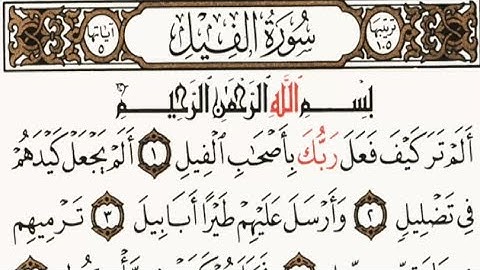 ترتيبها ١٠٥ سُورَةُ الفِيلِ آياتها ٥
بِسْمِ اللَّهِ الرَّحْمَٰنِ الرَّحِيمِ
أَلَمْ تَرَ كَيْفَ فَعَلَ رَبُّكَ بِأَصْحَابِ الْفِيلِ ١ أَلَمْ يَجْعَلْ كَيْدَهُمْ
فِي تَضْلِيلٍ ٢ وَأَرْسَلَ عَلَيْهِمْ طَيْرًا أَبَابِيلَ ٣ تَرْمِيهِم